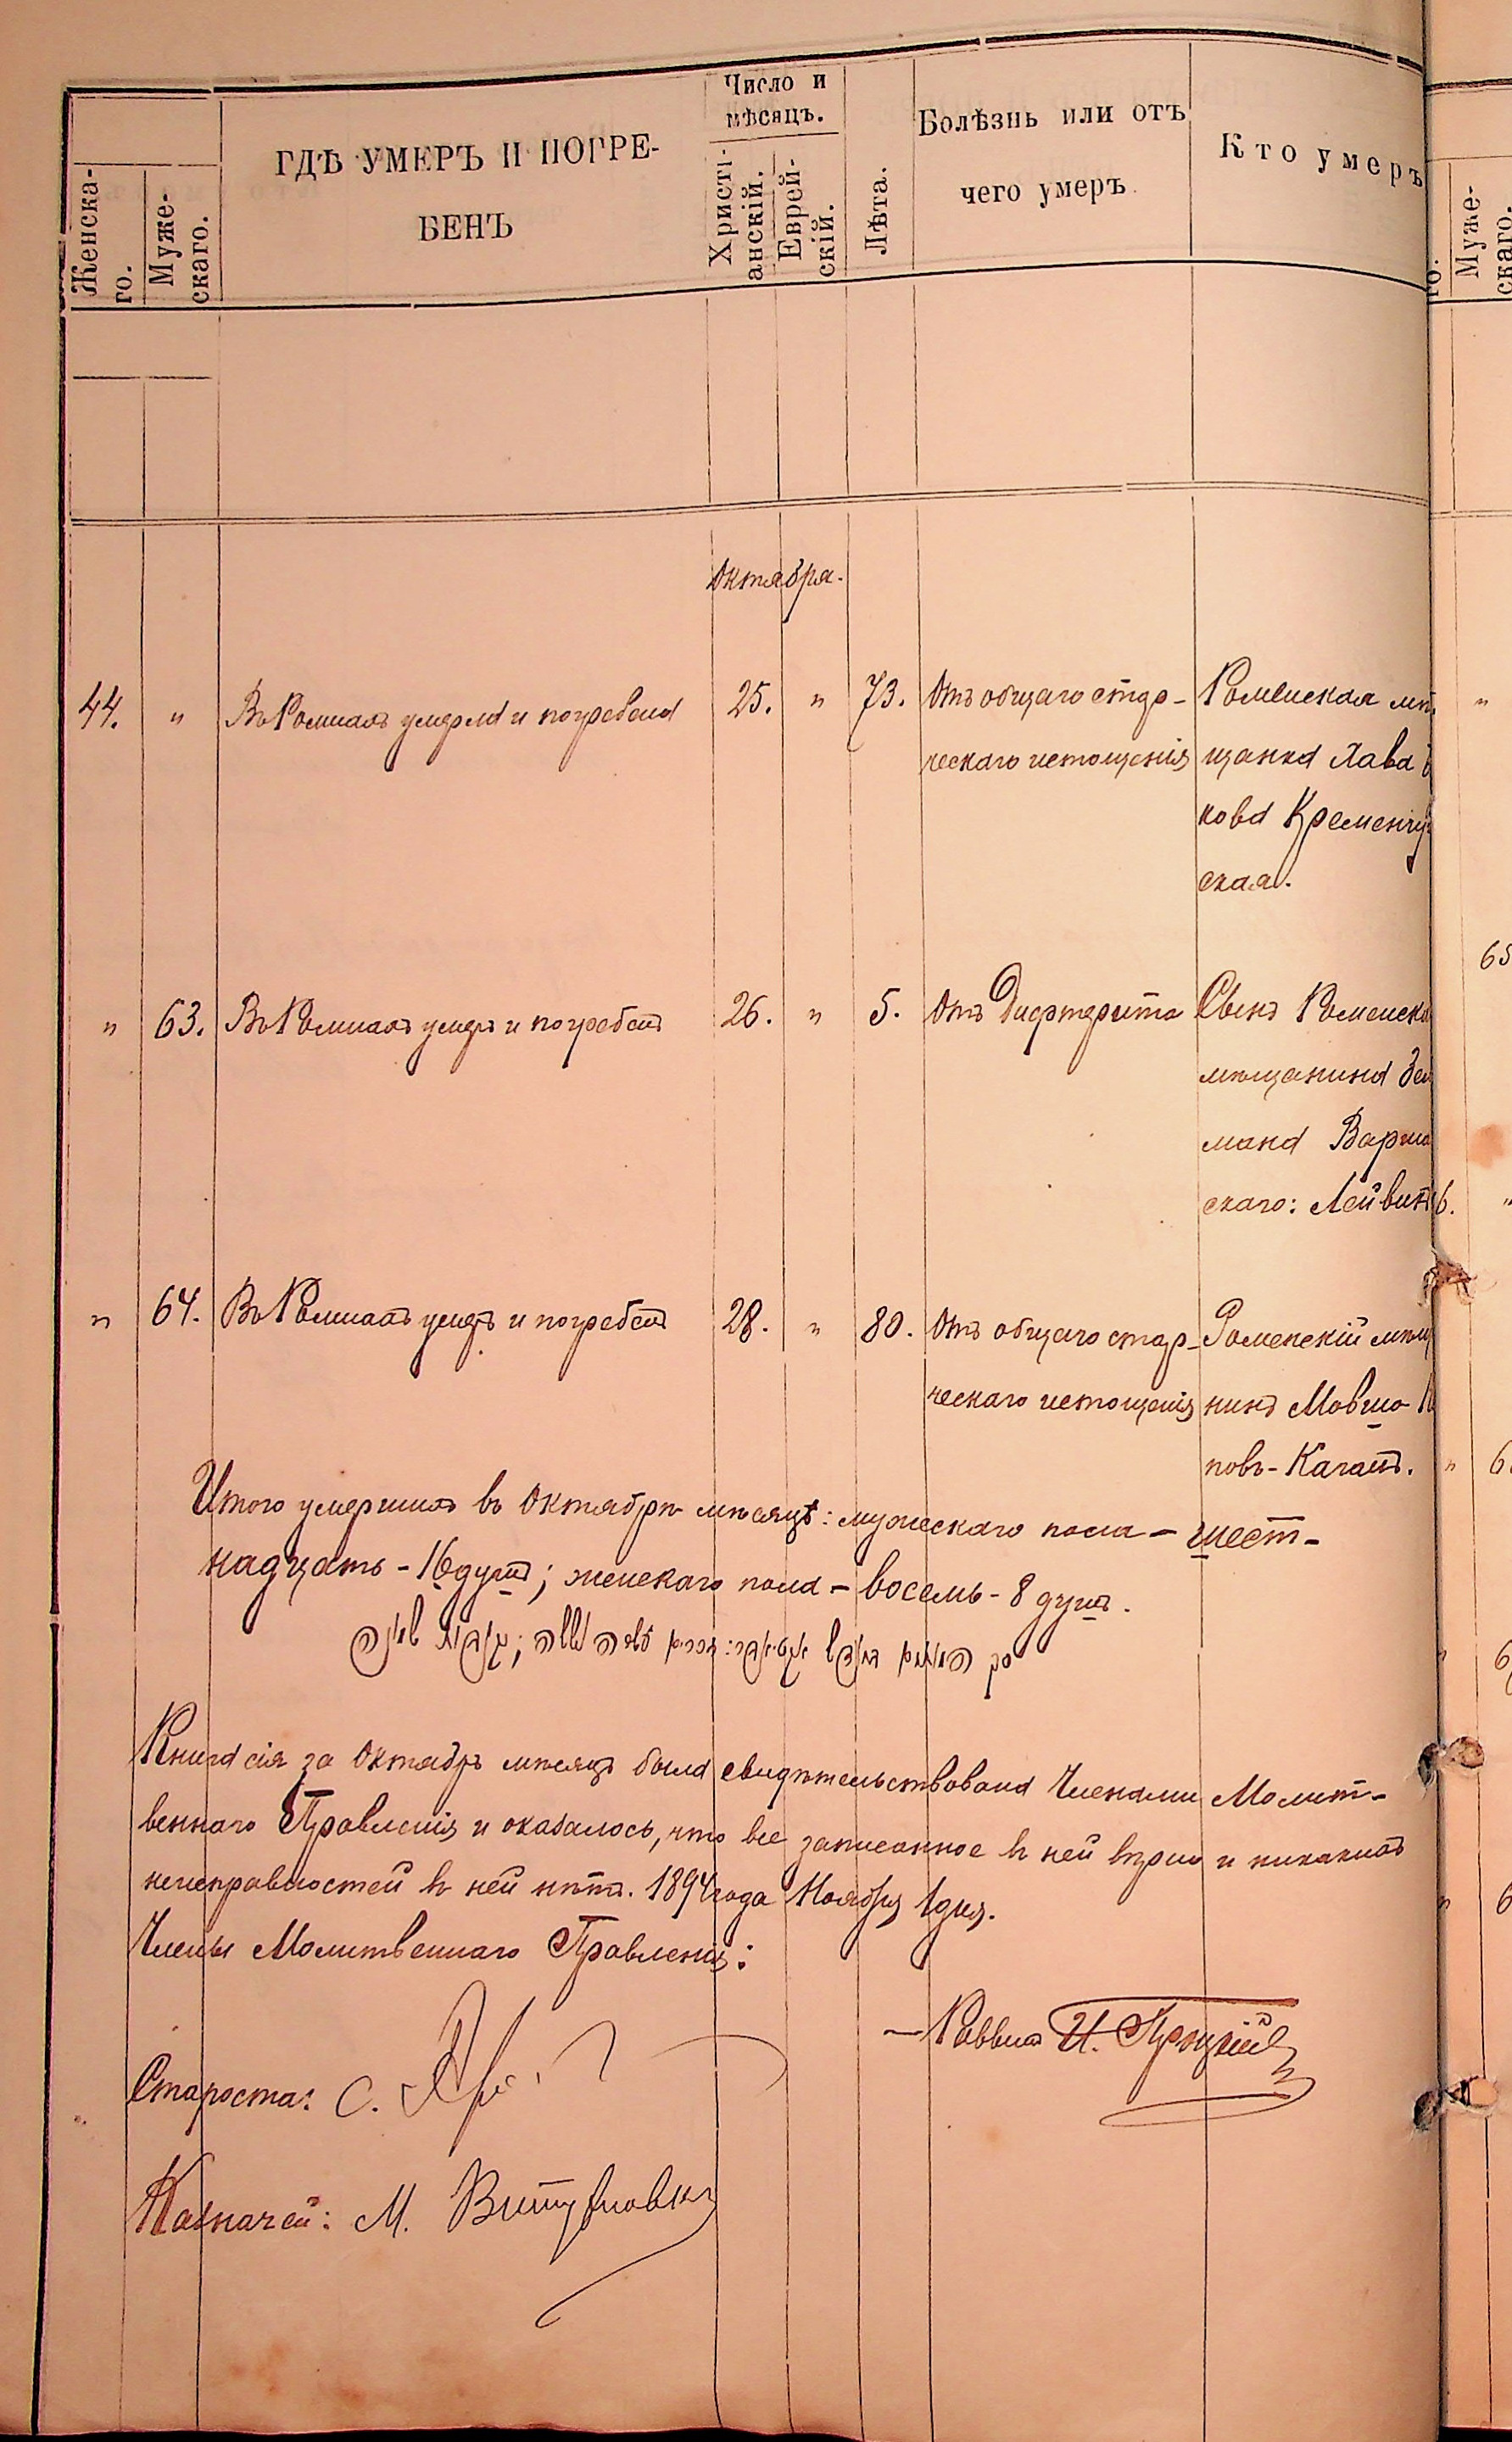 Число и
мѣсяцъ.
Женска-
го.
Муже-
скаго.
ГДѢ УМЕРЪ И ПОГРЕ-
БЕНЪ
Христі-
анскій.
Еврей-
скій.
Лѣта.
Болѣзнь или отъ
чего умеръ.
Кто умеръ
Муже-
скаго.
Октября.
44. " Въ Ромнахъ умерла и погребена 25. " 73. Отъ общаго стар- Роменская мѣ-
ческаго истощенія щанка Хава
кова Кременчуг
ская.
" 63. Въ Ромнахъ умеръ и погребенъ 26. " 5. Отъ Дифтерита Сынъ Роменска
мѣщанина Зел
мана Варша
скаго: Лейвикъ
" 64. Въ Ромнахъ умеръ и погребенъ 28. " 80. Отъ общаго стар- Роменскій мѣщ
ческаго истощенія нинъ Мовша
повъ-Каганъ.
Итого умершихъ въ Октябрѣ мѣсяцѣ: мужескаго пола - шест-
надцать - 16 душъ; женскаго пола - восемь - 8 душъ.
Книга сія за Октябрь мѣсяцъ была свидѣтельствована Членами Молит-
веннаго Правленія и оказалось, что все записанное въ ней вѣрно и никакихъ
неисправностей въ ней нѣтъ. 1894 года Ноября 1 дня.
Члены Молитвеннаго Правленія:
Раввинъ И.
Староста: С.
Казначей: М.